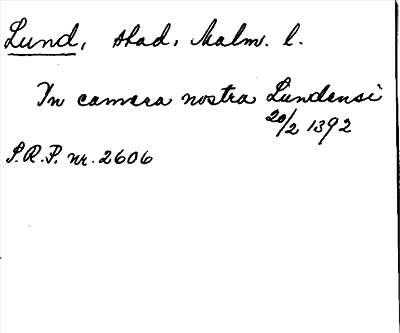 Lund, stad, Malm. l.
In camera nostra Lundensi
20/2 1392
S.R.P. nr. 2606